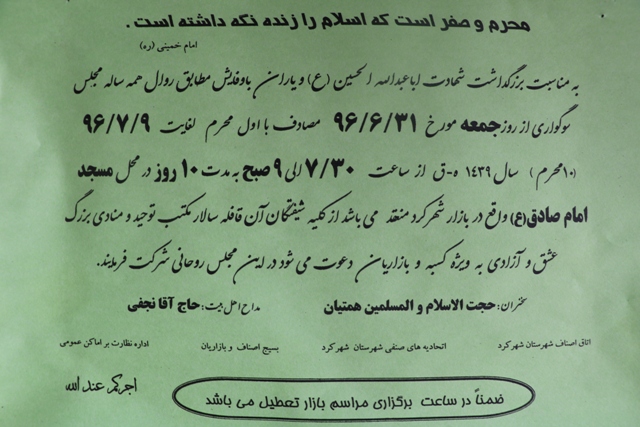 محرم و صفر است که اسلام را زنده نگه داشته است .
امام خمینی (ره)
به مناسبت بزرگداشت شهادت اباعبدالله الحسین (ع) و یاران باوفایش مطابق روال همه ساله مجلس
سوگواری از روز جمعه مورخ ۹۶/۶/۳۱ مصادف با اول محرم لغایت ۹۶/۷/۹
(۱۰محرم) سال ۱۴۳۹ ه-ق از ساعت ۷/۳۰ الی ۹ صبح به مدت ۱۰ روز در محل مسجد
امام صادق(ع) واقع در بازار شهرکرد منعقد می باشد از کلیه شیفتگان آن قافله سالار مکتب توحید و منادی بزرگ
عشق و آزادی به ویژه کسبه و بازاریان دعوت می شود در این مجلس روحانی شرکت فرمایند.
سخنران: حجت الاسلام و المسلمین همتیان مداح اهل بیت: حاج آقا نجفی
اتاق اصناف شهرستان شهرکرد اتحادیه های صنفی شهرستان شهرکرد بسیج اصناف و بازاریان اداره نظارت بر اماکن عمومی
اجرکم عند الله
ضمناً در ساعت برگزاری مراسم بازار تعطیل می باشد